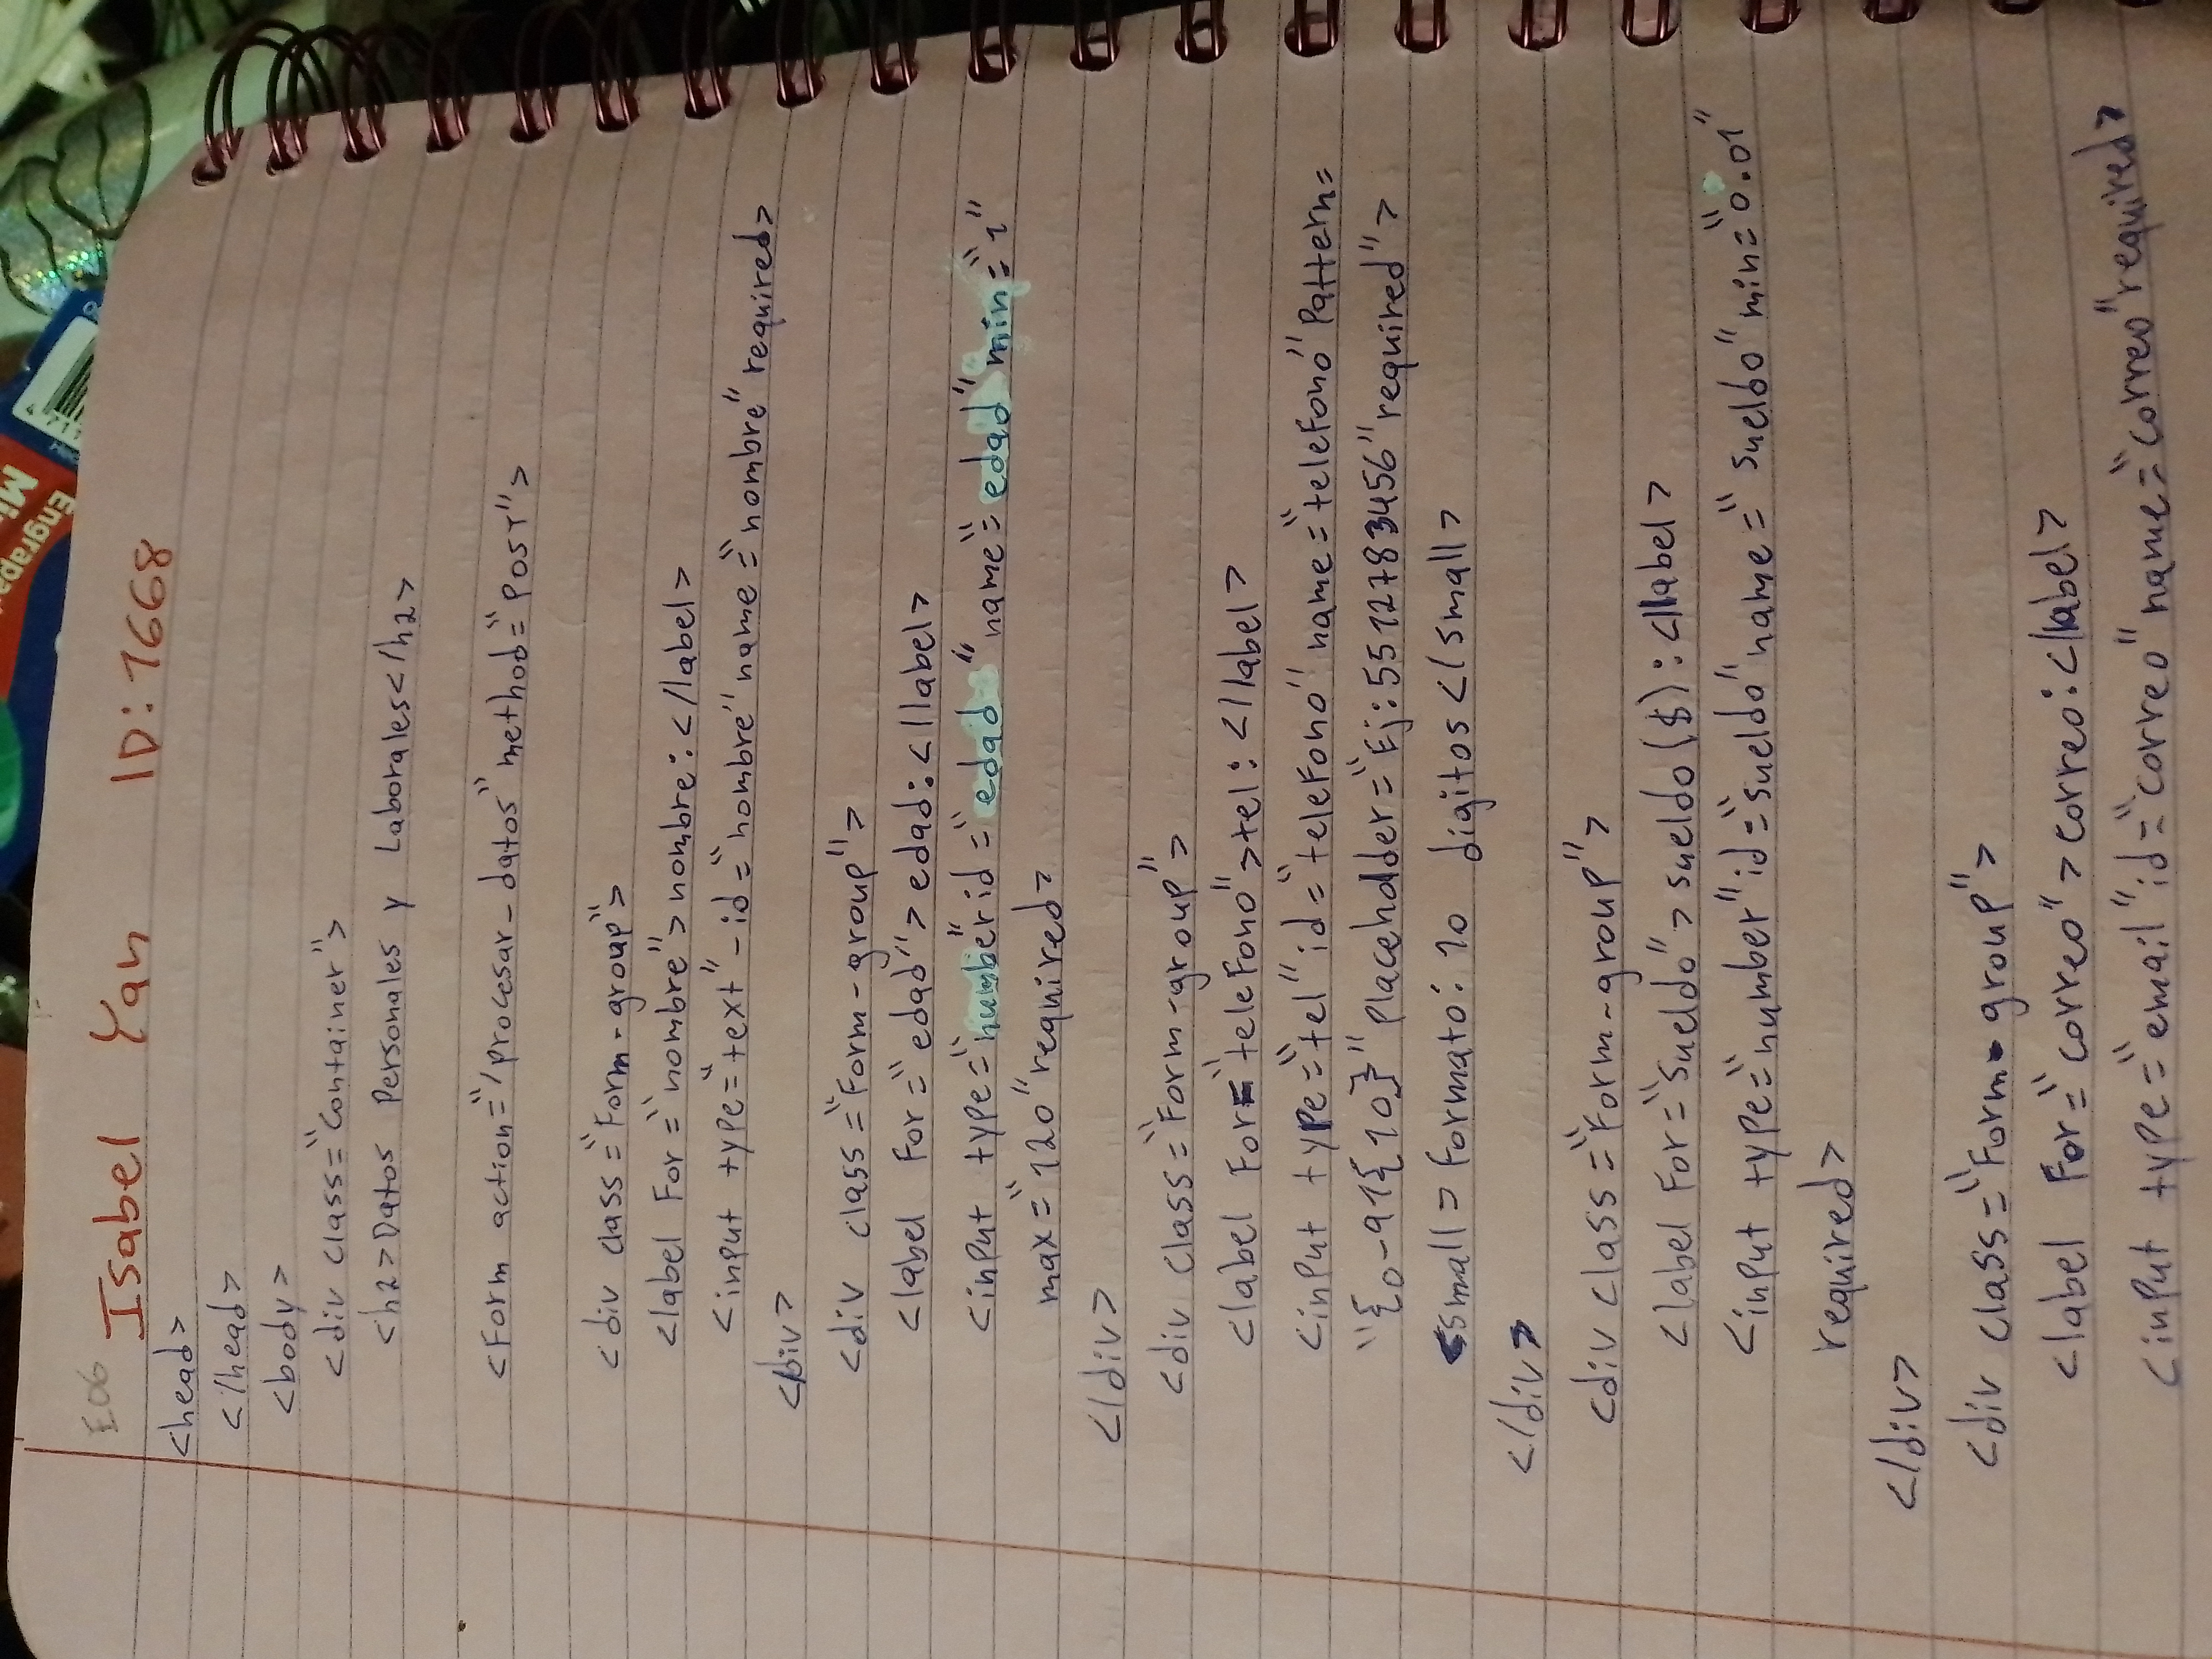 E06 Isabel Yan ID: 1668
<head>
</head>
<body>
<div class="Container">
<h2>Datos Personales y Laborales</h2>
<Form action="/procesar-datos" method="Post">
<div class="Form-group">
<label For="nombre">nombre:</label>
<input type="text"-id="nombre" name="nombre" required>
</div>
<div class="Form-group">
<label For="edad">edad:</label>
<input type="number" id="edad" name="edad" min="1"
max="120" required>
</div>
<div class="Form-group">
<label For="teleFono">tel:</label>
<input type="tel" id="teleFono" name="teleFono" Pattern=
"{0-91{10}" Placeholder="Ej:5512783456" required">
<small> Formato: 10 digitos </small>
</div>
<div class="Form-group">
<label For="Sueldo">sueldo($):</label>
<input type="number" id="Sueldo" name="sueldo" min="0.01"
required>
</div>
<div class="Form-group">
<label For="correo">correo:</label>
<input type="email" id="correo" name="correo" required>
Engrapa
Mi